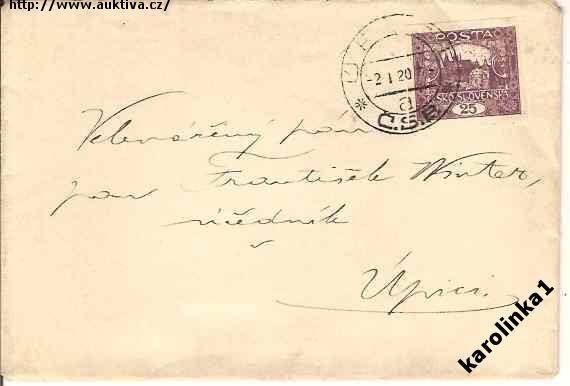 http://www.auktiva.cz/
POŠTA
-2 I 20
a
Č.S.P.
ČESKO-SLOVENSKÁ
25
Velevážený pán
pan František Winter,
úředník
Úpici.
karolinka1